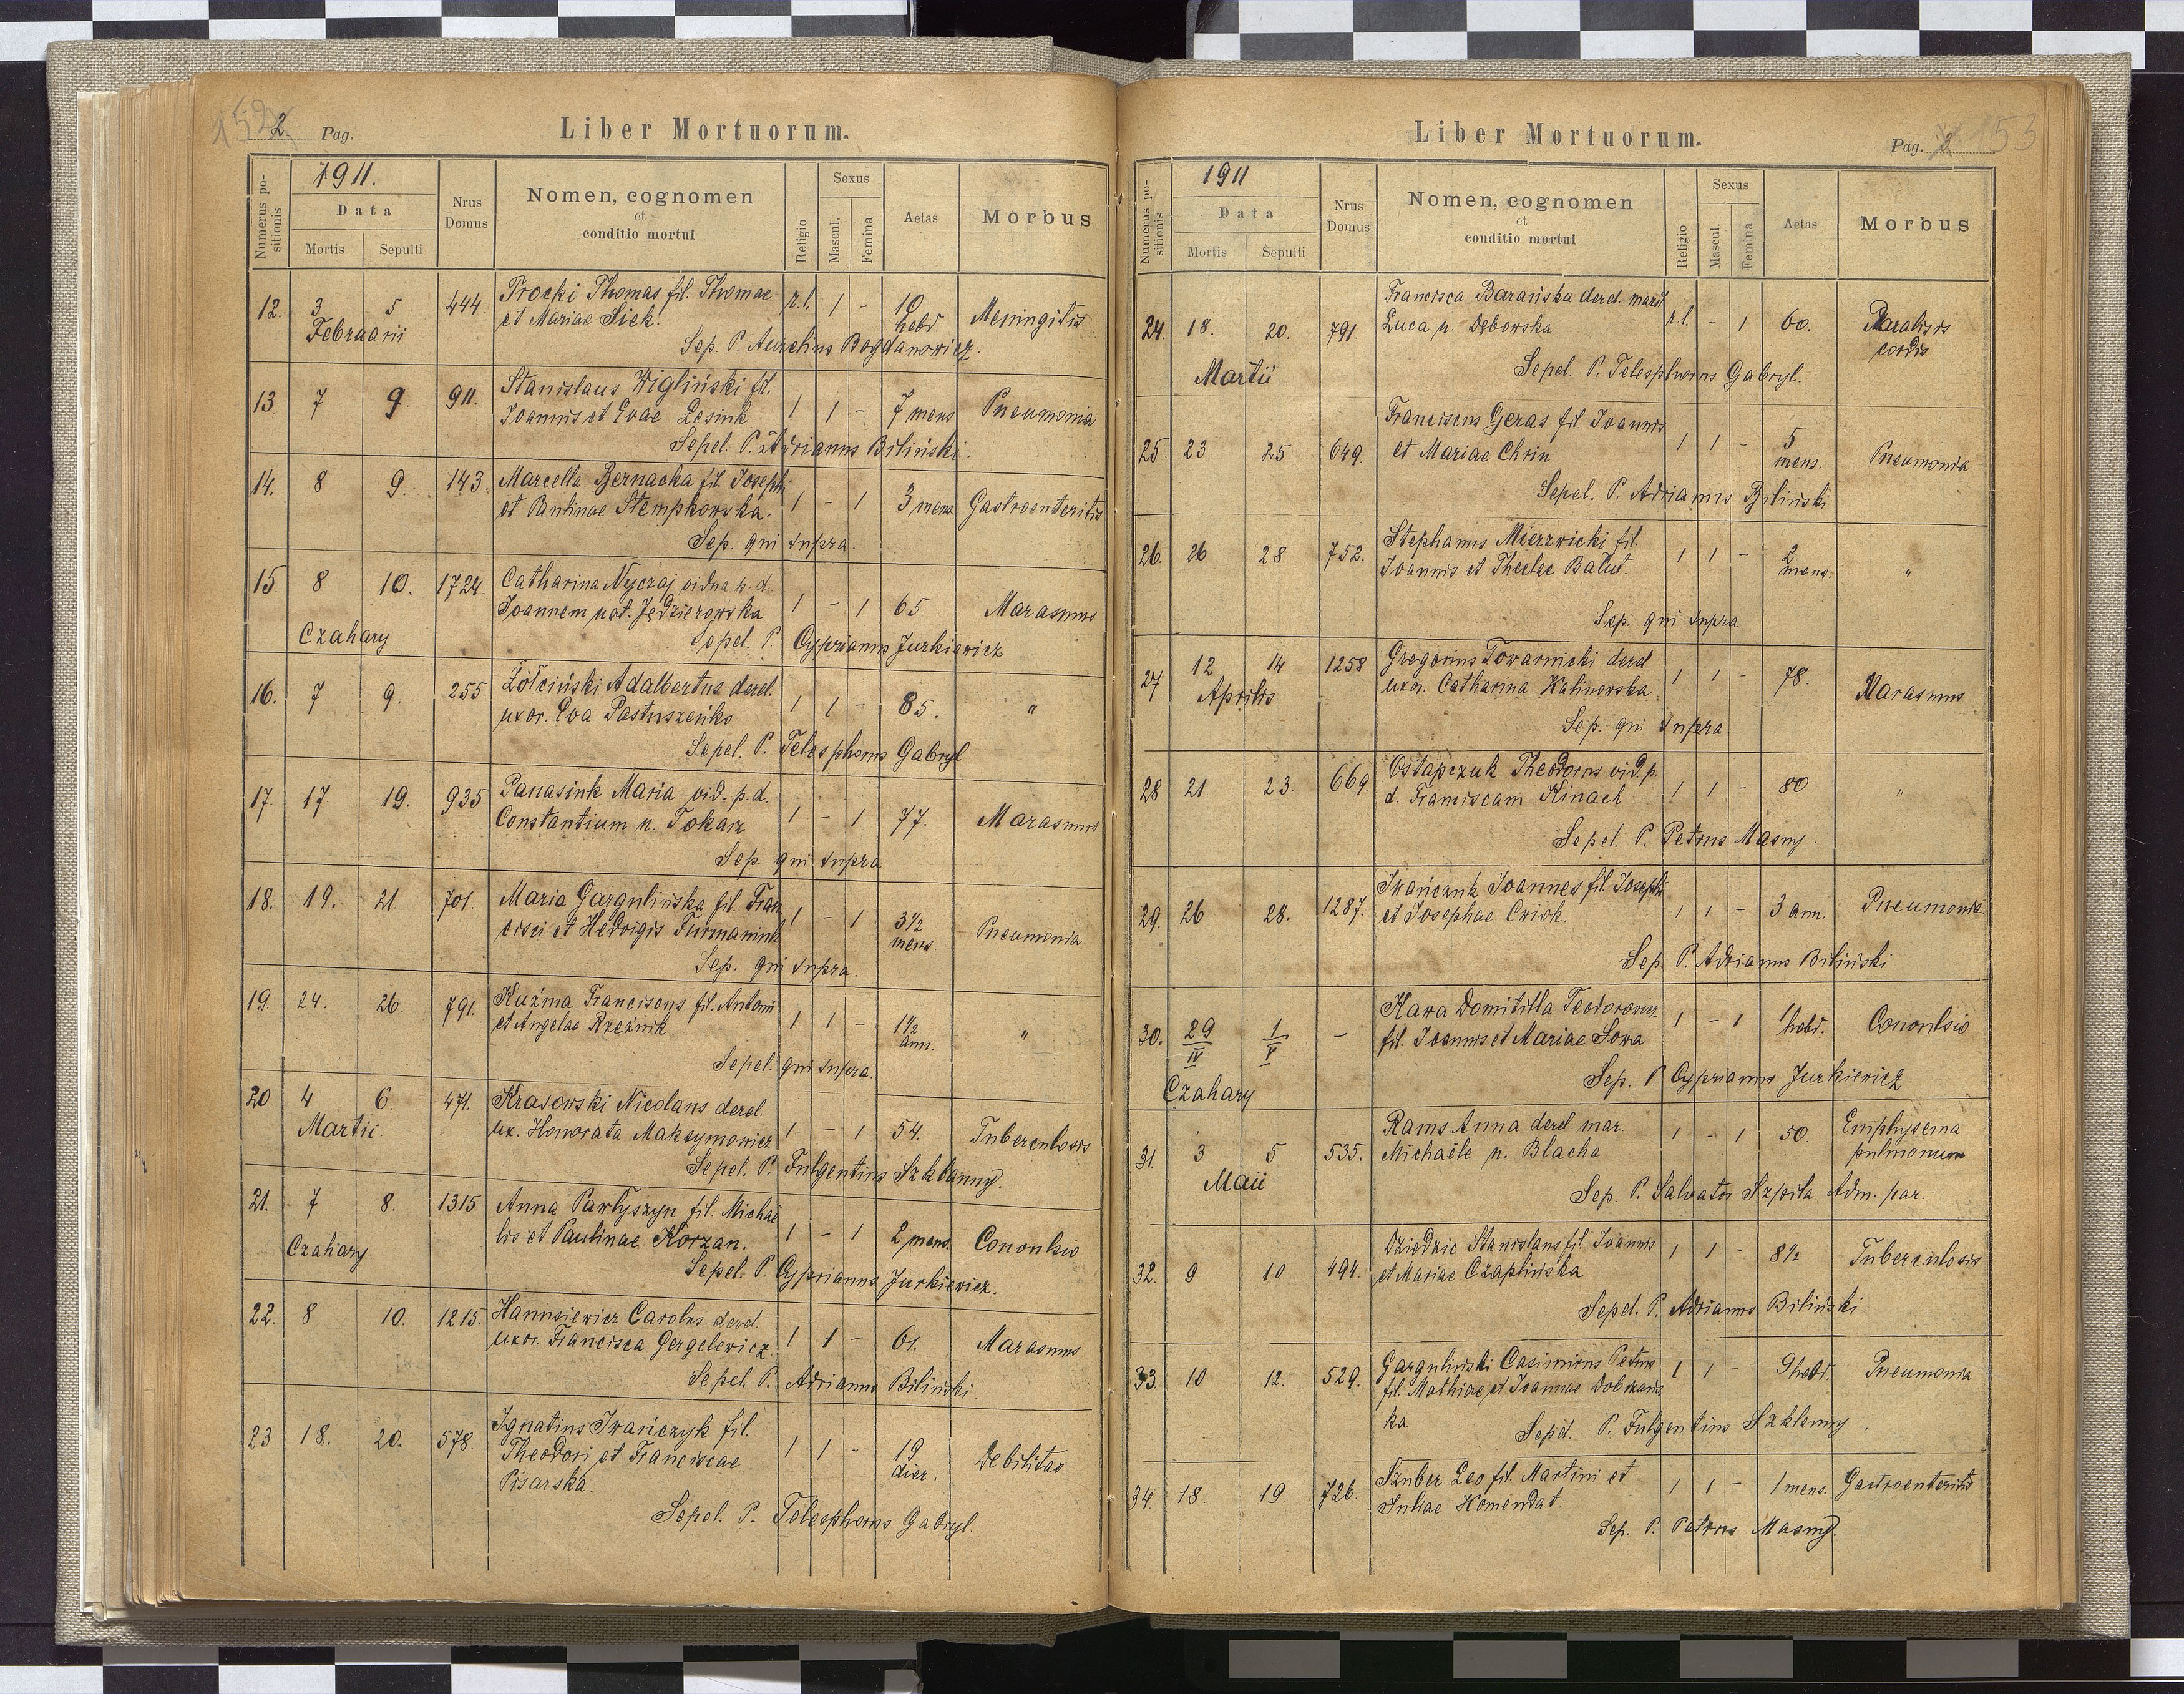 2. Pag.
Liber Mortuorum.
Numerus positionis
1911.
Data
Mortis Sepulti
Nrus Domus
Nomen, cognomen
et
conditio mortui
Religio
Sexus
Mascul. Femina
Aetas
Morbus
12. 3 5 444. Procki Thomas fil. Thomae r.l. 1 - 10 hebd. Meningitis
Februarii et Mariae Siek.
Sep. P. Aurelius Bogdanowicz.
13 7 9. 911. Stanislaus Wigliński fil. 1 1 - 7 mens Pneumonia
Joannis et Evae Lesiuk
Sepel. P. Adrianus Biliński.
14. 8 9. 143. Marcella Bernacka fil. Josephi 1 - 1 3 mens. Gastroenteritis
et Paulinae Stempkowska.
Sep. qui supra.
15. 8 10. 1724. Catharina Nyczaj vidua p. d. 1 - 1 65 Marasmus
Joannem nat. Jędzierowska
Czahary Sepel. P. Cyprianus Jurkiewicz
16. 7 9. 255. Żółciński Adalbertus derel. 1 1 - 85. "
uxor. Eva Pastuszeńko
Sepel. P. Telesphorus Gabryl
17. 17 19. 935 Panasiuk Maria vid. p. d. 1 - 1 77. Marasmus
Constantium n. Tokarz
Sep. qui supra
18. 19. 21. 701. Maria Gargulińska fil. Fran 1 - 1 3½ mens. Pneumonia
cisci et Hedvigis Furmaniuk
Sep. qui supra.
19. 24. 26. 791. Kuźma Franciscus fil. Antonii 1 1 - 1½ ann. "
et Angelae Rzeźnik.
Sepel. qui supra.
20 4 6. 471. Krasowski Nicolaus derel. 1 - 1 54. Tuberculosis
Martii ux. Honorata Maksymowicz
Sepel. P. Fulgentius Szklanny.
21. 7 8. 1315 Anna Pawłyszyn fil. Michae 1 - 1 2 mens. Convulsio
lis et Paulinae Korzan.
Czahary Sepel. P. Cyprianus Jurkiewicz.
22. 8 10. 1215. Hanusiewicz Carolus derel. 1 1 - 61. Marasmus
uxor. Francisca Gergelewicz
Sepel. P. Adrianus Biliński
23 18. 20. 578. Ignatius Iwańczyk fil. 1 1 - 19 dier. Debilitas
Theodori et Franciscae
Pisarska.
Sepel. P. Telesphorus Gabryl.
Liber Mortuorum.
Pag. 3 53
Numerus positionis
1911
Data
Mortis Sepulti
Nrus Domus
Nomen, cognomen
et
conditio mortui
Religio
Sexus
Mascul. Femina
Aetas
Morbus
24. 18. 20. 791. Francisca Barańska derel. marit. r.l. - 1 60. Paralisis cordis
Luca n. Dębowska
Martii Sepel. P. Telesphorus Gabryl.
25. 23 25 649. Franciscus Geras fil. Joannis 1 1 - 5 mens. Pneumonia
et Mariae Chrin
Sepel. P. Adrianus Biliński
26. 26 28 752. Stephanus Mierzwicki fil. 1 1 - 2 mens. "
Joannis et Theclae Balut.
Sep. qui supra
27 12 14 1258 Gregorius Towarnicki derel 1 1 - 78. Marasmus
Aprilis uxor. Catharina Kalinowska.
Sep. qui supra.
28 21. 23. 669. Ostapczuk Theodorus vid. p. 1 1 - 80 "
d. Franciscam Kinach
Sepel. P. Petrus Masny
29. 26 28. 1287. Iwańczuk Joannes fil. Josephi 1 1 - 3 ann. Pneumonia
et Josephae Cwiok.
Sep. P. Adrianus Biliński
30. 29/IV 1/V - Kawa Domitilla Teodorowicz 1 - 1 1 hebd. Convulsio
fil. Joannis et Mariae Sowa
Czahary Sep. P. Cyprianus Jurkiewicz
31. 3 5 535. Rams Anna derel. mar. 1 - 1 50. Emphysema pulmonum
Michaële n. Blacha
Maii Sep. P. Salvator Szpila Adm. par.
32. 9 10 494. Dziedzic Stanislaus fil. Joannis 1 1 - 8½ Tuberculosis
et Mariae Czaplińska
Sepel. P. Adrianus Biliński
33. 10 12. 529. Garguliński Casimirus Petrus 1 1 - 9 hebd. Pneumonia
fil. Mathiae et Joannae Dobrzańs
ka Sepel. P. Fulgentius Szklanny.
34 18. 19. 726. Szuber Leo fil. Martini et 1 1 - 1 mens. Gastroenteritis
Juliae Komendat.
Sep. P. Petrus Masny.